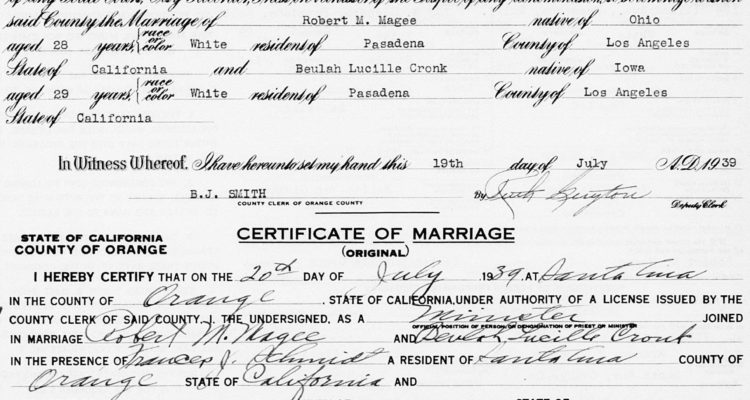 said County the Marriage of Robert M. Magee native of Ohio
aged 28 years race or color White resident of Pasadena County of Los Angeles
State of California and Beulah Lucille Cronk native of Iowa
aged 29 years race or color White resident of Pasadena County of Los Angeles
State of California
In Witness Whereof, I have hereunto set my hand this 19th day of July A.D. 1939
B.J. SMITH By Ruth Guyton
COUNTY CLERK OF ORANGE COUNTY Deputy Clerk
STATE OF CALIFORNIA
COUNTY OF ORANGE
CERTIFICATE OF MARRIAGE
(ORIGINAL)
I HEREBY CERTIFY THAT ON THE 20th DAY OF July 1939, AT Santa Ana
IN THE COUNTY OF Orange, STATE OF CALIFORNIA, UNDER AUTHORITY OF A LICENSE ISSUED BY THE
COUNTY CLERK OF SAID COUNTY, I, THE UNDERSIGNED, AS A Minister JOINED
OFFICIAL POSITION OF PERSON, OR DENOMINATION OF PRIEST OR MINISTER
IN MARRIAGE Robert M. Magee AND Beulah Lucille Cronk
IN THE PRESENCE OF Frances J. Schmidt A RESIDENT OF Santa Ana COUNTY OF
Orange STATE OF California AND